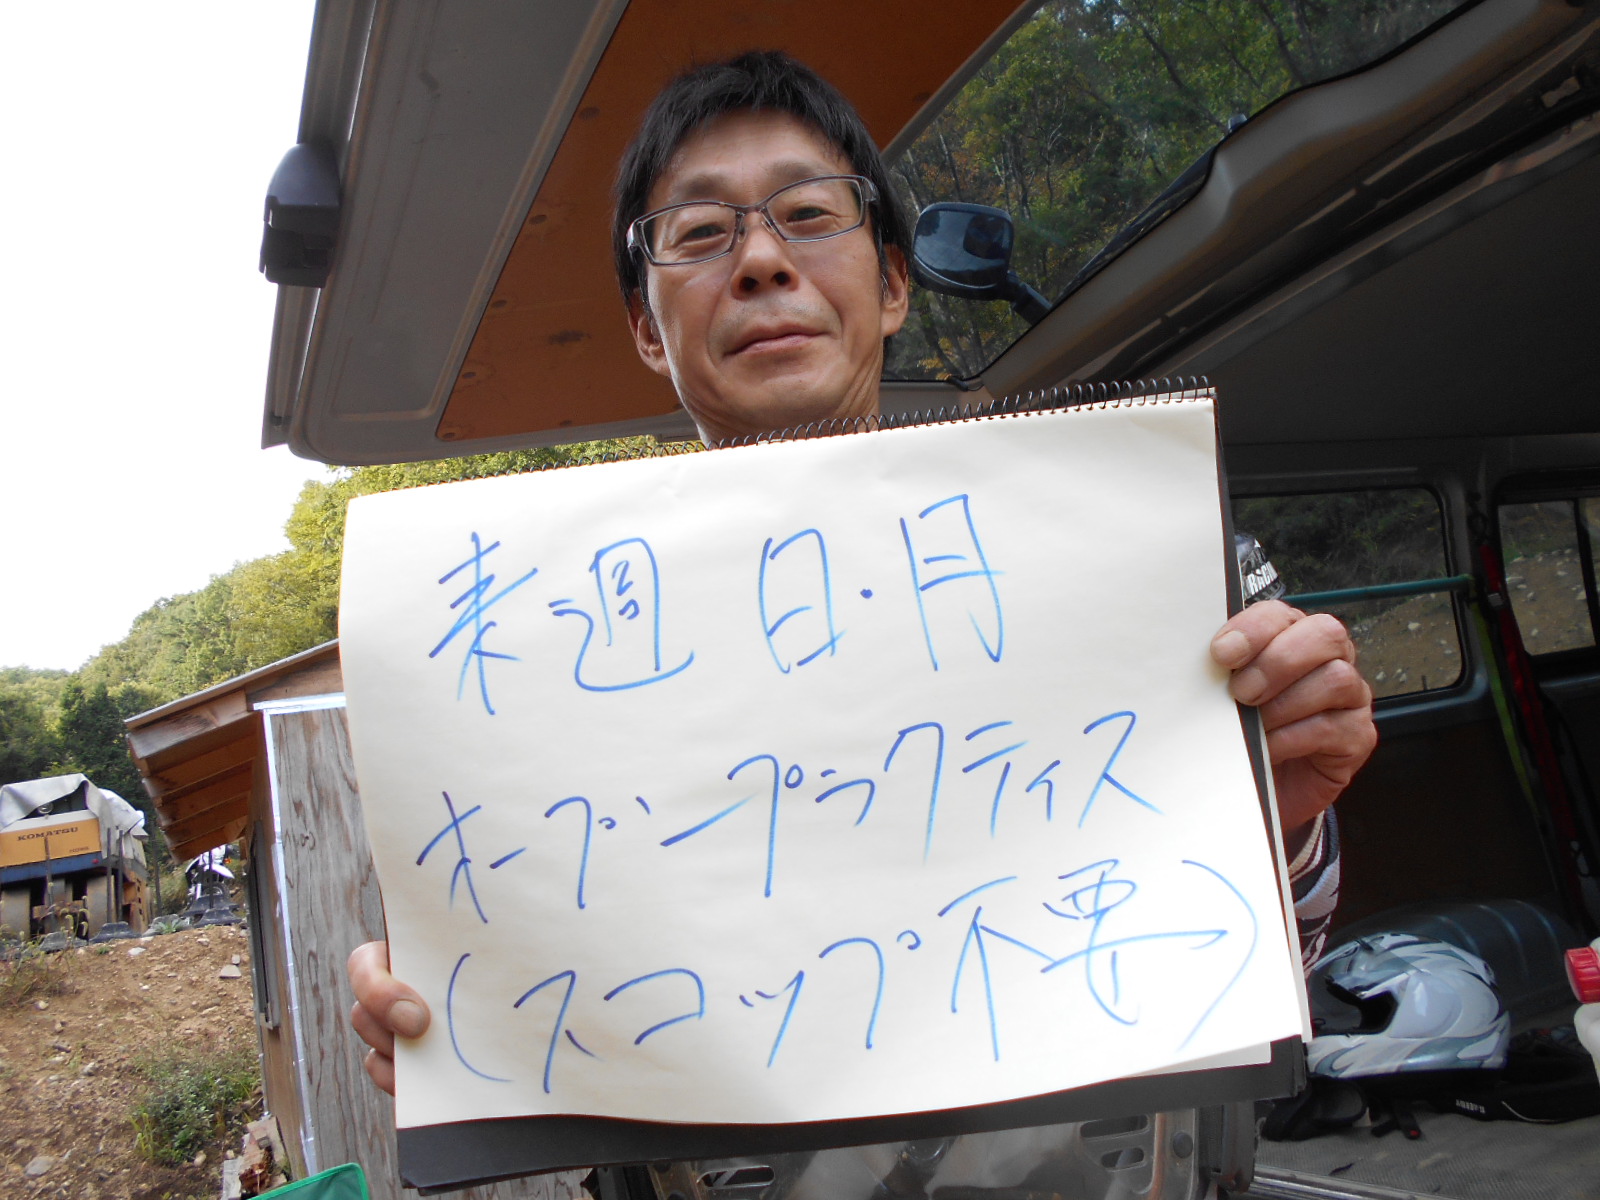 来週 日・月
オープンプラクティス
(スコップ不要)
KOMATSU